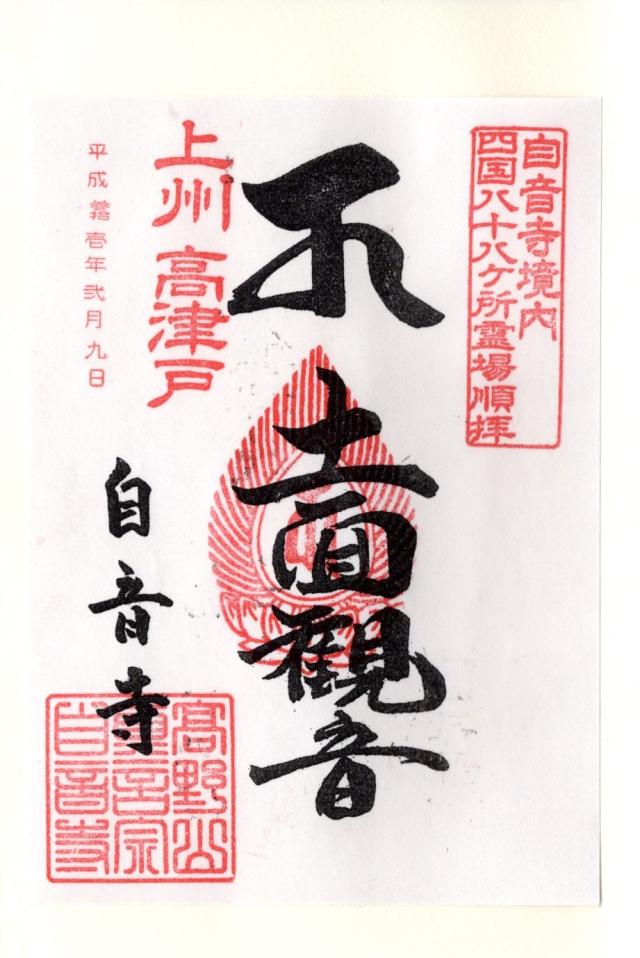 自音寺境内
四国八十八ケ所霊場順拝
十一面觀音
上州 高津戸
平成 壱年弐月九日
自音寺
高野山
真言宗
自音寺